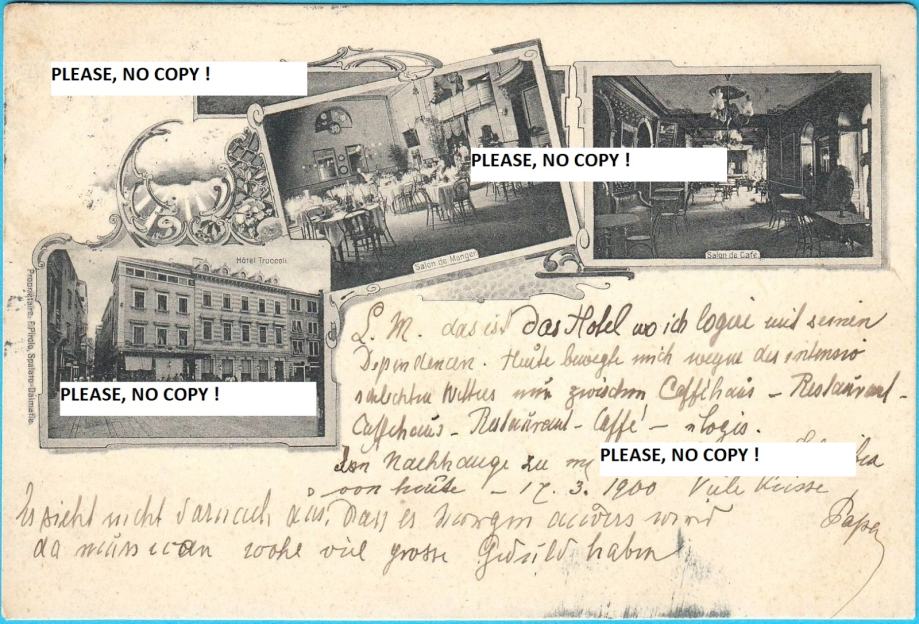 PLEASE, NO COPY !
PLEASE, NO COPY !
Salon de Manger
Salon de Café
Hôtel Troccoli
Proprietaire. P. Pirolo, Spalato-Dalmatie.
PLEASE, NO COPY !
L. M. das ist das Hotel wo ich logire mit seinen
Dependencen. Heute bewegte mich wegen des intensiv
schlechten Wetters nur zwischen Cafféhaus - Restaurant -
Caffehaus - Restaurant - Caffé - Logis.
Im Nachhange zu
PLEASE, NO COPY !
von heute - 17. 3. 1900 Viele Küsse
Papa
Es sieht nicht darnach aus, dass es morgen anders wird
da muss man wohl viel grosse Geduld haben